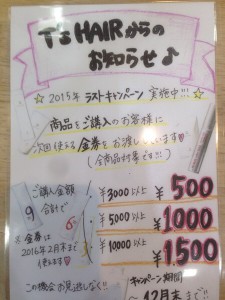 T's HAIRからの
お知らせ♪
☆2015年 ラストキャンペーン 実施中!!!☆
商品をご購入のお客様に
次回使える金券をお渡ししています♡
(全商品対象です!!!)
ご購入金額
合計で
¥3000以上 ¥500
¥5000以上 ¥1000
¥10000以上 ¥1,500
※金券は
2016年2月末まで
使えます♡
この機会お見逃しなく!!
キャンペーン期間
〜12月末まで!!